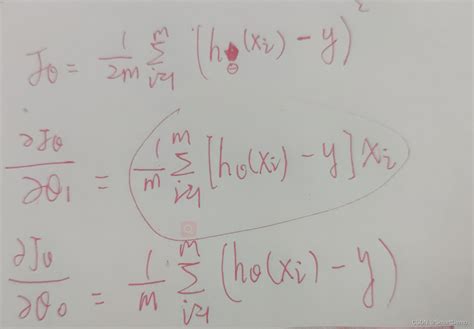 J_θ = 1/2m Σ_{i=1}^{m} (h_θ(x_i) − y)²
∂J_θ/∂θ_1 = 1/m Σ_{i=1}^{m} [h_θ(x_i) − y] x_i
∂J_θ/∂θ_0 = 1/m Σ_{i=1}^{m} (h_θ(x_i) − y)